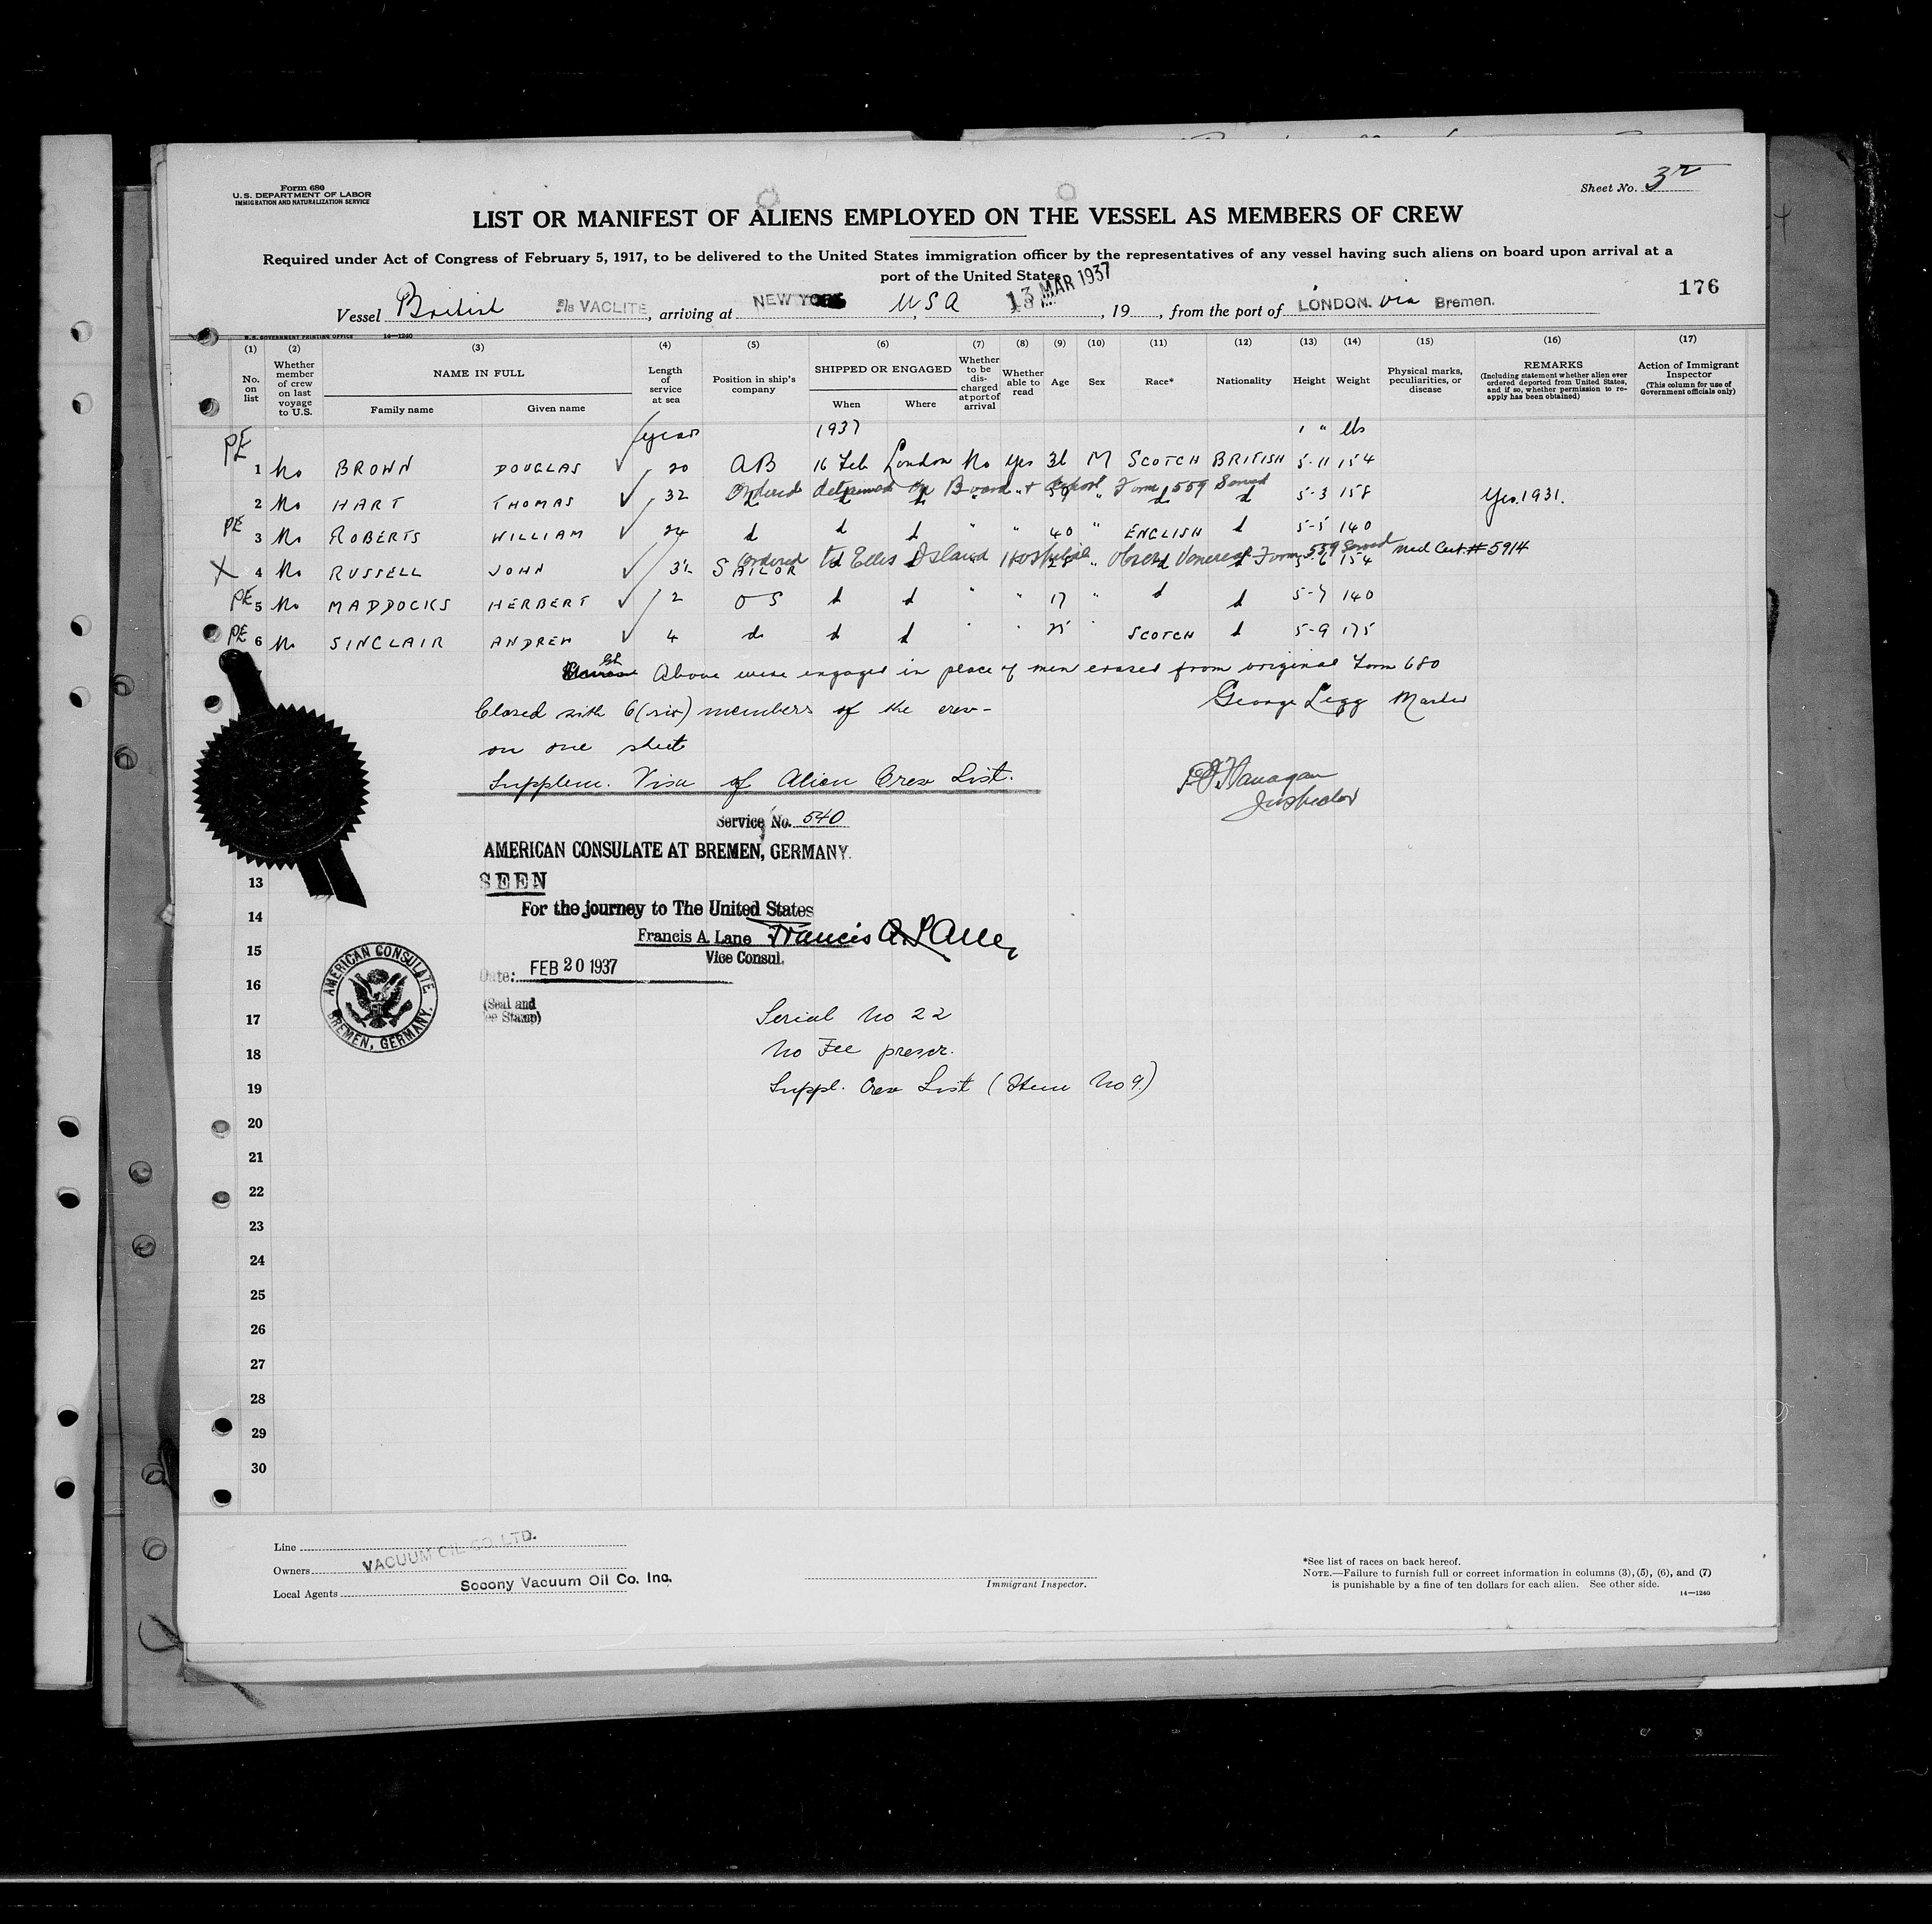 Form 680
U. S. DEPARTMENT OF LABOR
IMMIGRATION AND NATURALIZATION SERVICE
Sheet No. 3
LIST OR MANIFEST OF ALIENS EMPLOYED ON THE VESSEL AS MEMBERS OF CREW
Required under Act of Congress of February 5, 1917, to be delivered to the United States immigration officer by the representatives of any vessel having such aliens on board upon arrival at a
port of the United States
176
Vessel British S/s VACLITE, arriving at NEW YORK U.S.A 13 MAR 1937, 19, from the port of LONDON. via Bremen.
U. S. GOVERNMENT PRINTING OFFICE 14—1240
(1) (2) (3) (4) (5) (6) (7) (8) (9) (10) (11) (12) (13) (14) (15) (16) (17)
No. on list
Whether member of crew on last voyage to U.S.
NAME IN FULL
Family name
Given name
Length of service at sea
Position in ship's company
SHIPPED OR ENGAGED
When
Where
Whether to be discharged at port of arrival
Whether able to read
Age
Sex
Race*
Nationality
Height
Weight
Physical marks, peculiarities, or disease
REMARKS
(Including statement whether alien ever ordered deported from United States, and if so, whether permission to reapply has been obtained)
Action of Immigrant Inspector
(This column for use of Government officials only)
years 1937 ' " lbs
PE 1 No BROWN DOUGLAS ✓ 20 AB 16 Feb London No Yes 36 M SCOTCH BRITISH 5-11 154
Ordered detained on Board + deport Form 559 Served
2 No HART THOMAS ✓ 32 d d d " " " d d 5-3 158 Yes. 1931.
PE 3 No ROBERTS WILLIAM ✓ 24 d d d " " 40 " ENGLISH d 5-5 140
Ordered to Ellis Island Hospital Observ Venereal Form 559 Served Med Cert. # 5914
X 4 No RUSSELL JOHN ✓ SAILOR d d " 28 " d d 5-6 154
PE 5 No MADDOCKS HERBERT ✓ 2 OS d d " " 17 " d d 5-7 140
PE 6 No SINCLAIR ANDREW ✓ 4 d d d " " 25 SCOTCH d 5-9 175
Above were engaged in place of men erased from original Form 680
George Legg Master
Closed with 6 (six) members of the crew-
on one sheet
Supplem. Visa of Alien Crew List.
Flanagan
Inspector
Service No. 540
AMERICAN CONSULATE AT BREMEN, GERMANY.
SEEN
For the journey to The United States
Francis A. Lane Francis A. Lane
Vice Consul.
Date: FEB 20 1937
(Seal and
ee Stamp)
AMERICAN CONSULATE
BREMEN, GERMANY.
Serial No 22
No Fee prescr.
Suppl. Crew List (Item No 9.)
13
14
15
16
17
18
19
20
21
22
23
24
25
26
27
28
29
30
Line
Owners VACUUM OIL CO. LTD.
Local Agents Socony Vacuum Oil Co. Inc.
Immigrant Inspector.
*See list of races on back hereof.
NOTE.—Failure to furnish full or correct information in columns (3), (5), (6), and (7)
is punishable by a fine of ten dollars for each alien. See other side.
14—1240